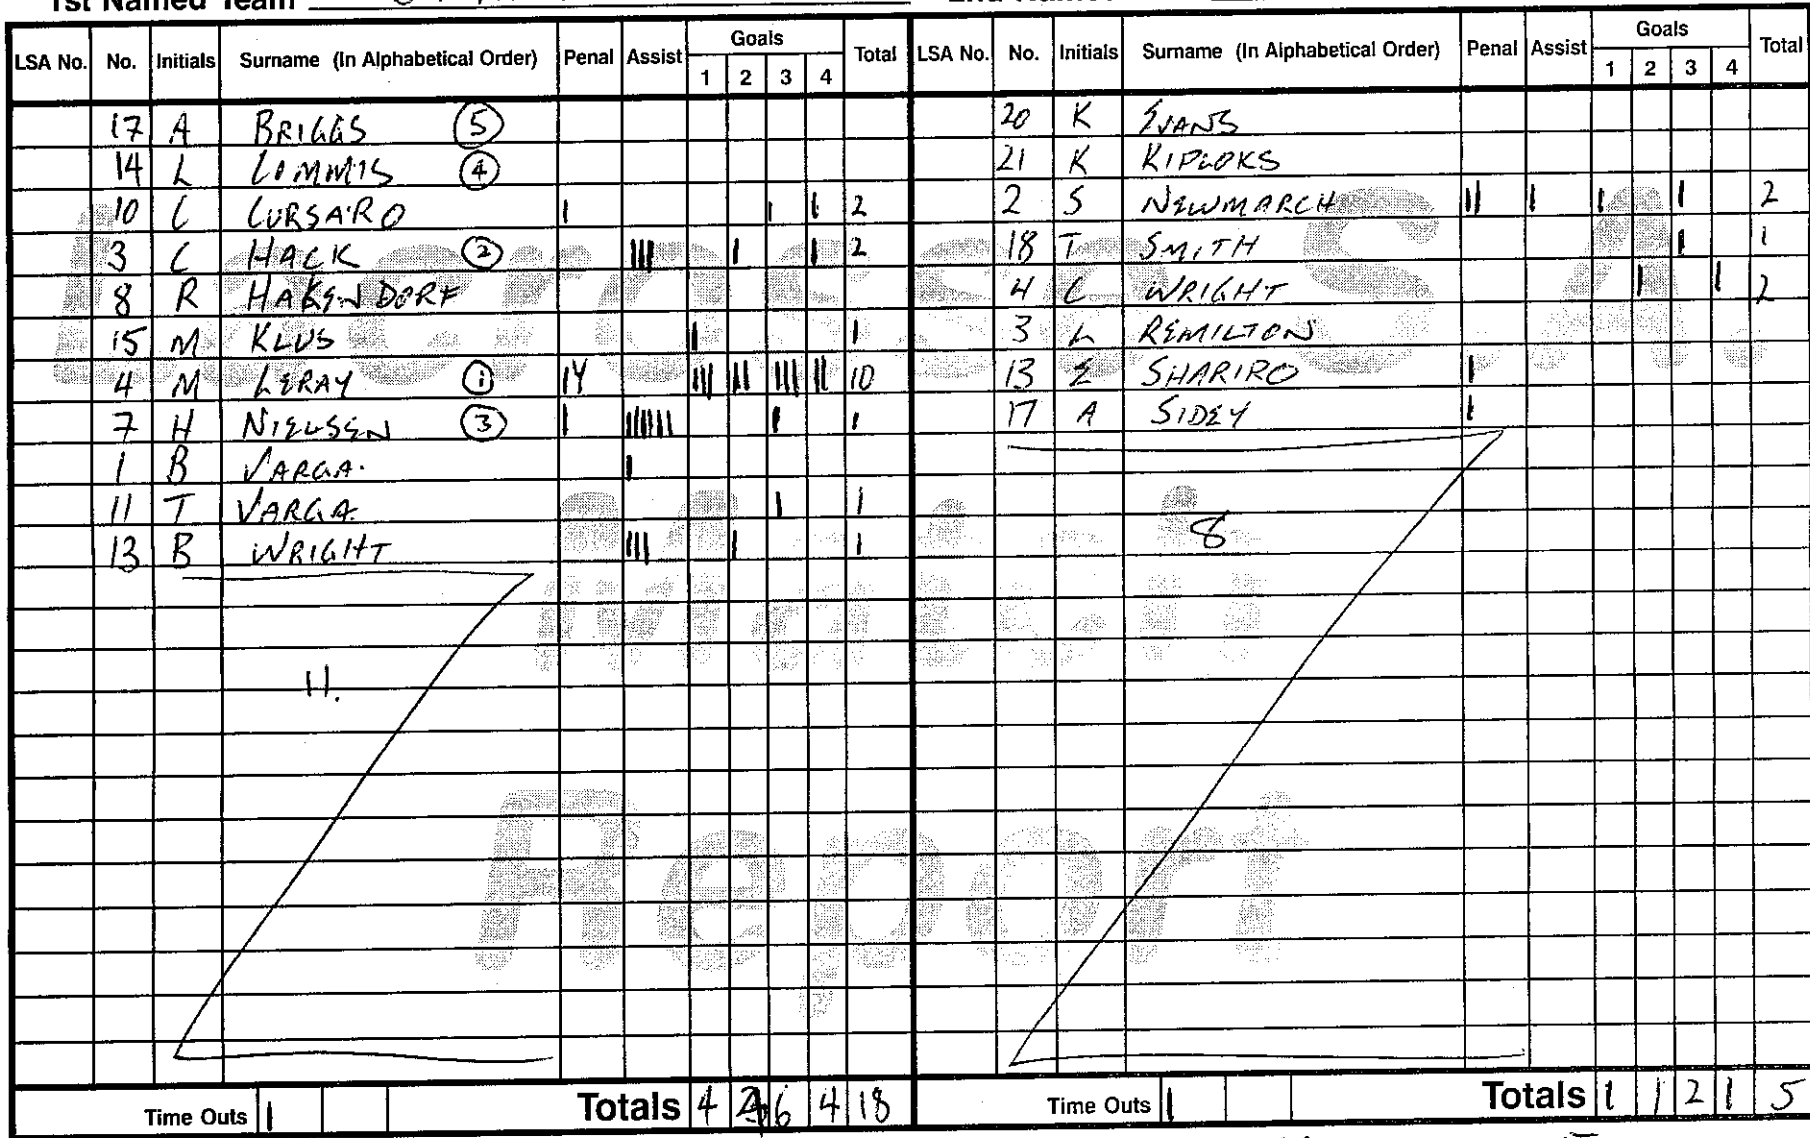 1st Named Team
LSA No. No. Initials Surname (In Alphabetical Order) Penal Assist Goals 1 2 3 4 Total
17 A BRIGGS (5)
14 L LOMMIS (4)
10 C CURSARO I I I 2
3 C HACK (2) IIII I I 2
8 R HAKENDORF
15 M KLUS I 1
4 M LERAY (1) 1Y III II III II 10
7 H NIELSEN (3) I IIIIII I 1
1 B VARGA. I
11 T VARGA. I 1
13 B WRIGHT III I 1
11.
Time Outs I Totals 4 4 6 4 18
LSA No. No. Initials Surname (In Alphabetical Order) Penal Assist Goals 1 2 3 4 Total
20 K EVANS
21 K KIPLOKS
2 S NEWMARCH II I I I 2
18 T SMITH I 1
4 C WRIGHT I I 2
3 L REMILTON
13 E SHARIRO I
17 A SIDEY I
8
Time Outs I Totals 1 1 2 1 5
Report